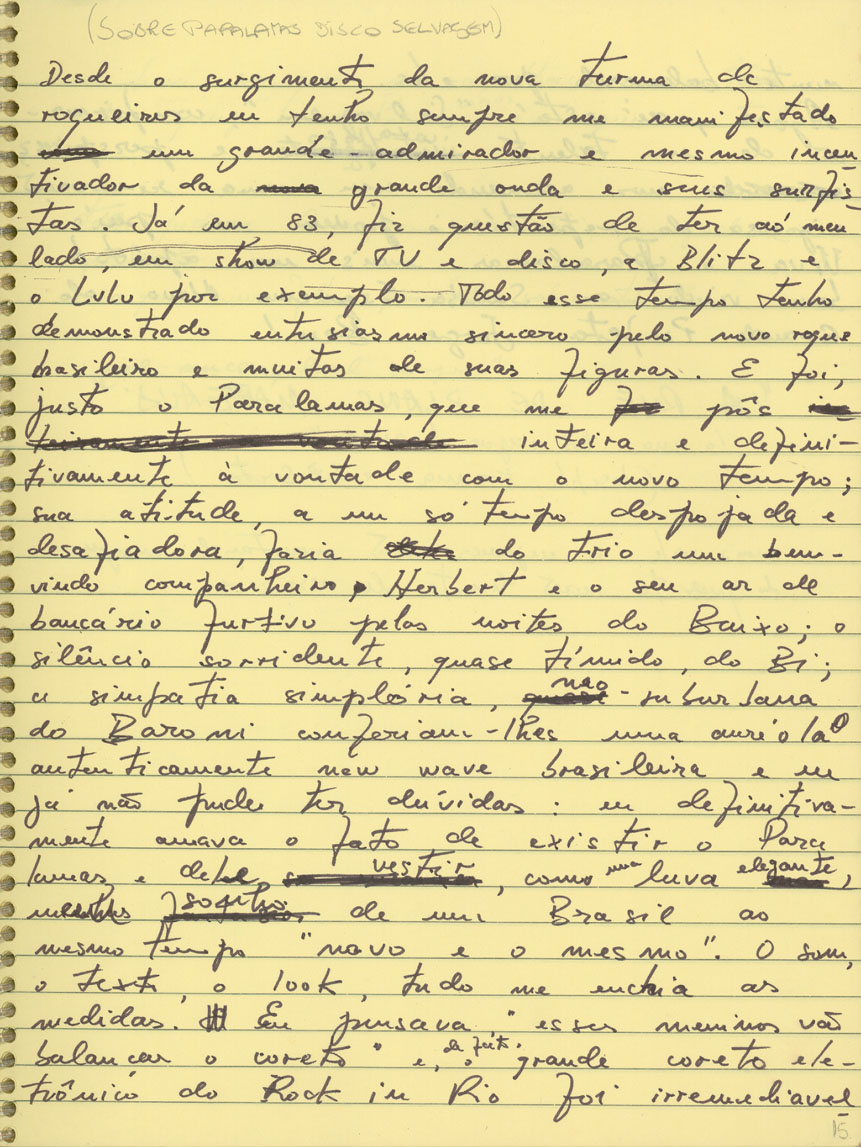 (SOBRE PARALAMAS DISCO SELVAGEM)
Desde o surgimento da nova turma de
roqueiros eu tenho sempre me manifestado
um grande admirador e mesmo incen
tivador da nova grande onda e seus surfis
tas. Já em 83, fiz questão de ter ao meu
lado, em show de TV e disco, a Blitz e
o Lulu por exemplo. Todo esse tempo tenho
demonstrado entusiasmo sincero pelo novo roque
brasileiro e muitas de suas figuras. E foi,
justo o Paralamas, que me pôs
inteira e defini-
tivamente à vontade com o novo tempo;
sua atitude, a um só tempo despojada e
desafiadora, faria do trio um bem-
vindo companheiro, Herbert e o seu ar de
bancário furtivo pelas noites do Baixo; o
silêncio sorridente, quase tímido, do Bi;
a simpatia simplória, não quase-suburbana
do Baroni conferiam-lhes uma auréola
autenticamente new wave brasileira e eu
já não pude ter dúvidas: eu definitiva-
mente amava o fato de existir o Para
lamas e dele vestir, como uma luva elegante,
sonho de um Brasil ao
mesmo tempo "novo e o mesmo". O som,
o texto, o look, tudo me enchia as
medidas. Eu pensava, "esses meninos vão
balançar o coreto" e, de fato, o grande coreto ele-
trônico do Rock in Rio foi irremediavel
15